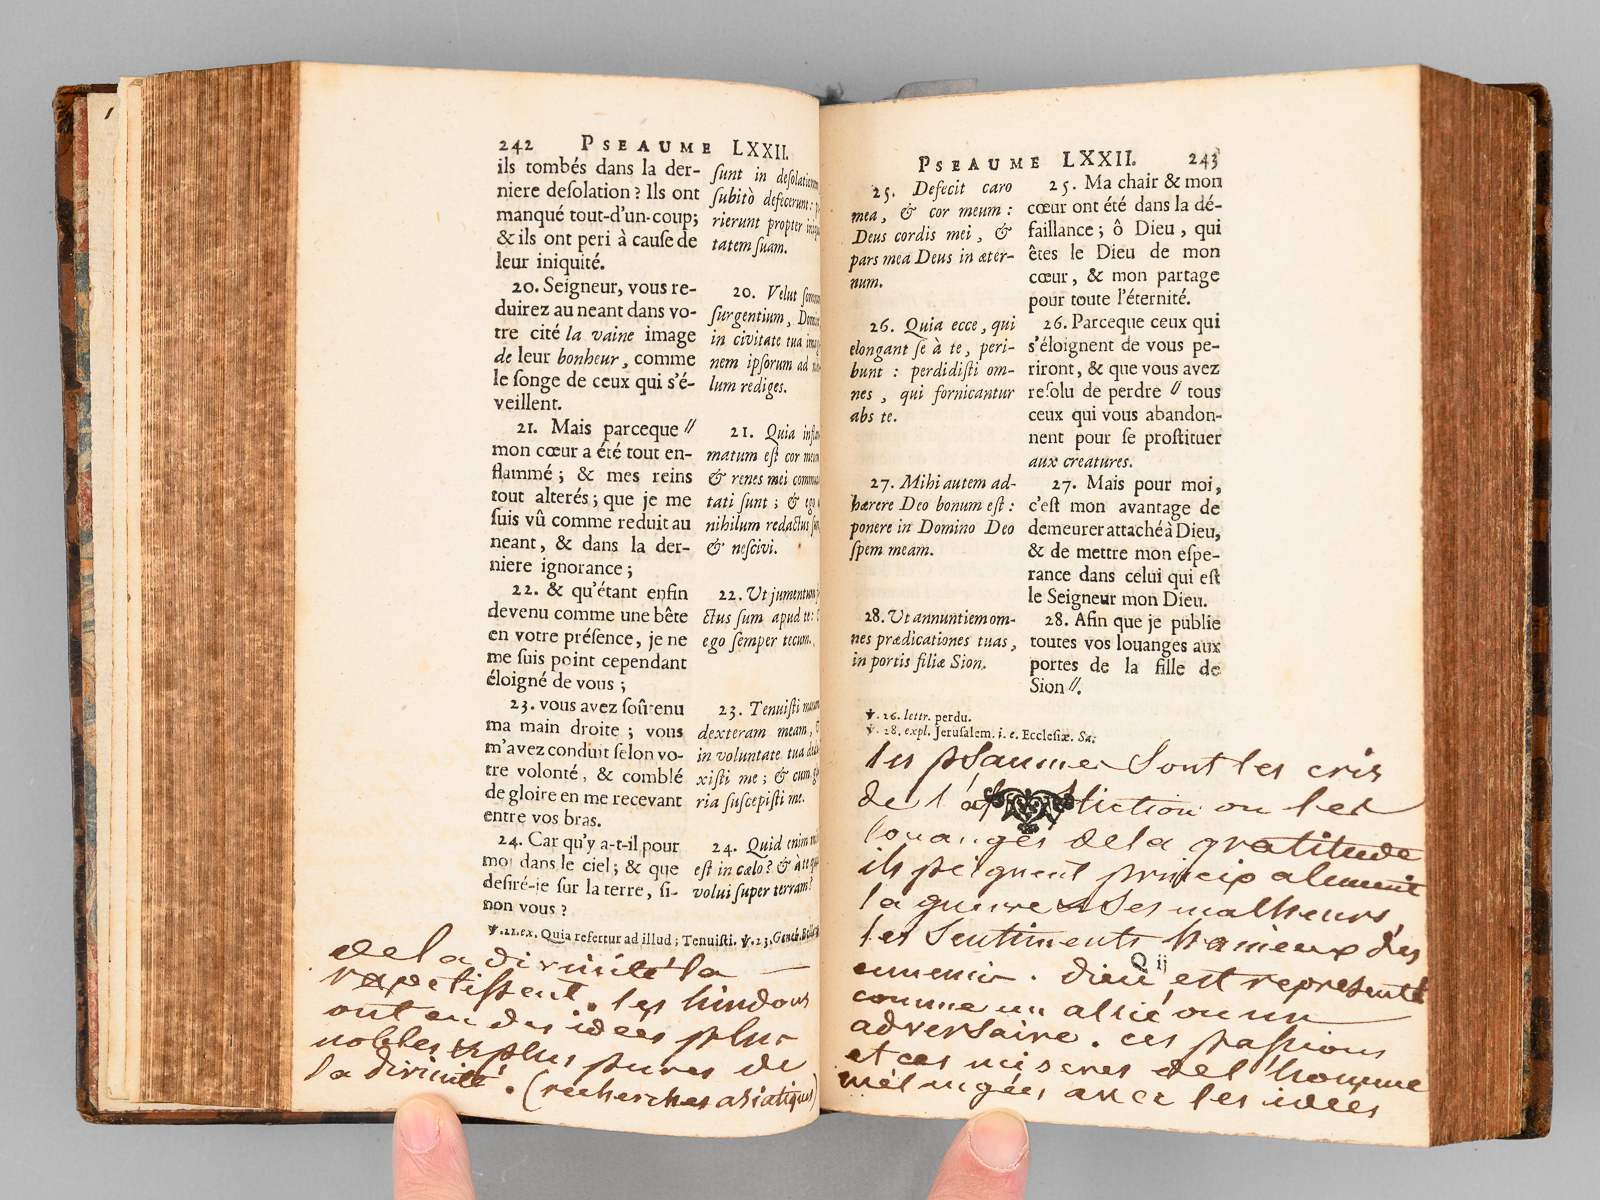 242 PSEAUME LXXII.
ils tombés dans la der-
niere deſolation ? Ils ont
manqué tout-d'un-coup;
& ils ont peri à cauſe de
leur iniquité.
20. Seigneur, vous re-
duirez au neant dans vo-
tre cité la vaine image
de leur bonheur, comme
le ſonge de ceux qui s'é-
veillent.
21. Mais parceque //
mon cœur a été tout en-
flammé ; & mes reins
tout alterés ; que je me
ſuis vû comme reduit au
neant, & dans la der-
niere ignorance ;
22. & qu'étant enfin
devenu comme une bête
en votre préſence, je ne
me ſuis point cependant
éloigné de vous ;
23. vous avez ſoûtenu
ma main droite ; vous
m'avez conduit ſelon vo-
tre volonté, & comblé
de gloire en me recevant
entre vos bras.
24. Car qu'y a-t-il pour
moi dans le ciel; & que
deſiré-je ſur la terre, ſi-
non vous ?
ſunt in deſolationem
ſubitò defecerunt :
rierunt propter
tatem ſuam.
20. Velut
ſurgentium,
in civitate tua
nem ipſorum ad
lum rediges.
21. Quia
matum eſt cor
& renes mei
tati ſunt ; & ego
nihilum redactus
& neſcivi.
22. Ut jumentum
ctus ſum apud te :
ego ſemper tecum.
23. Tenuiſti
dexteram meam,
in voluntate tua
xiſti me ; & cum
ria ſuſcepiſti me.
24. Quid enim
eſt in cælo ? & à te
volui ſuper terram ?
℣. 21. ex. Quia refertur ad illud ; Tenuiſti. ℣. 23. Geneb.
de la divinité la
rapetissent. les hindous
ont eu des idées plus
nobles & plus pures de
la divinité. (recherches asiatiques)
PSEAUME LXXII. 243
25. Defecit caro
mea, & cor meum :
Deus cordis mei, &
pars mea Deus in æter-
num.
26. Quia ecce, qui
elongant ſe à te, peri-
bunt : perdidiſti om-
nes, qui fornicantur
abs te.
27. Mihi autem ad-
hærere Deo bonum eſt :
ponere in Domino Deo
ſpem meam.
28. Ut annuntiem om-
nes prædicationes tuas,
in portis filiæ Sion.
25. Ma chair & mon
cœur ont été dans la dé-
faillance ; ô Dieu, qui
êtes le Dieu de mon
cœur, & mon partage
pour toute l'éternité.
26. Parceque ceux qui
s'éloignent de vous pe-
riront, & que vous avez
reſolu de perdre // tous
ceux qui vous abandon-
nent pour ſe proſtituer
aux creatures.
27. Mais pour moi,
c'eſt mon avantage de
demeurer attaché à Dieu,
& de mettre mon eſpe-
rance dans celui qui eſt
le Seigneur mon Dieu.
28. Afin que je publie
toutes vos louanges aux
portes de la fille de
Sion //.
℣. 26. lettr. perdu.
℣. 28. expl. Jeruſalem. i. e. Eccleſiæ. Sa.
les psaumes sont les cris
de l'affliction ou les
louanges de la gratitude
ils peignent principalement
la guerre & ses malheurs,
les sentiments haineux des
ennemis. dieu est representé
Q ij
comme un allié ou un
adversaire. ces passions
et ces miseres de l'homme
mélangées avec les idées